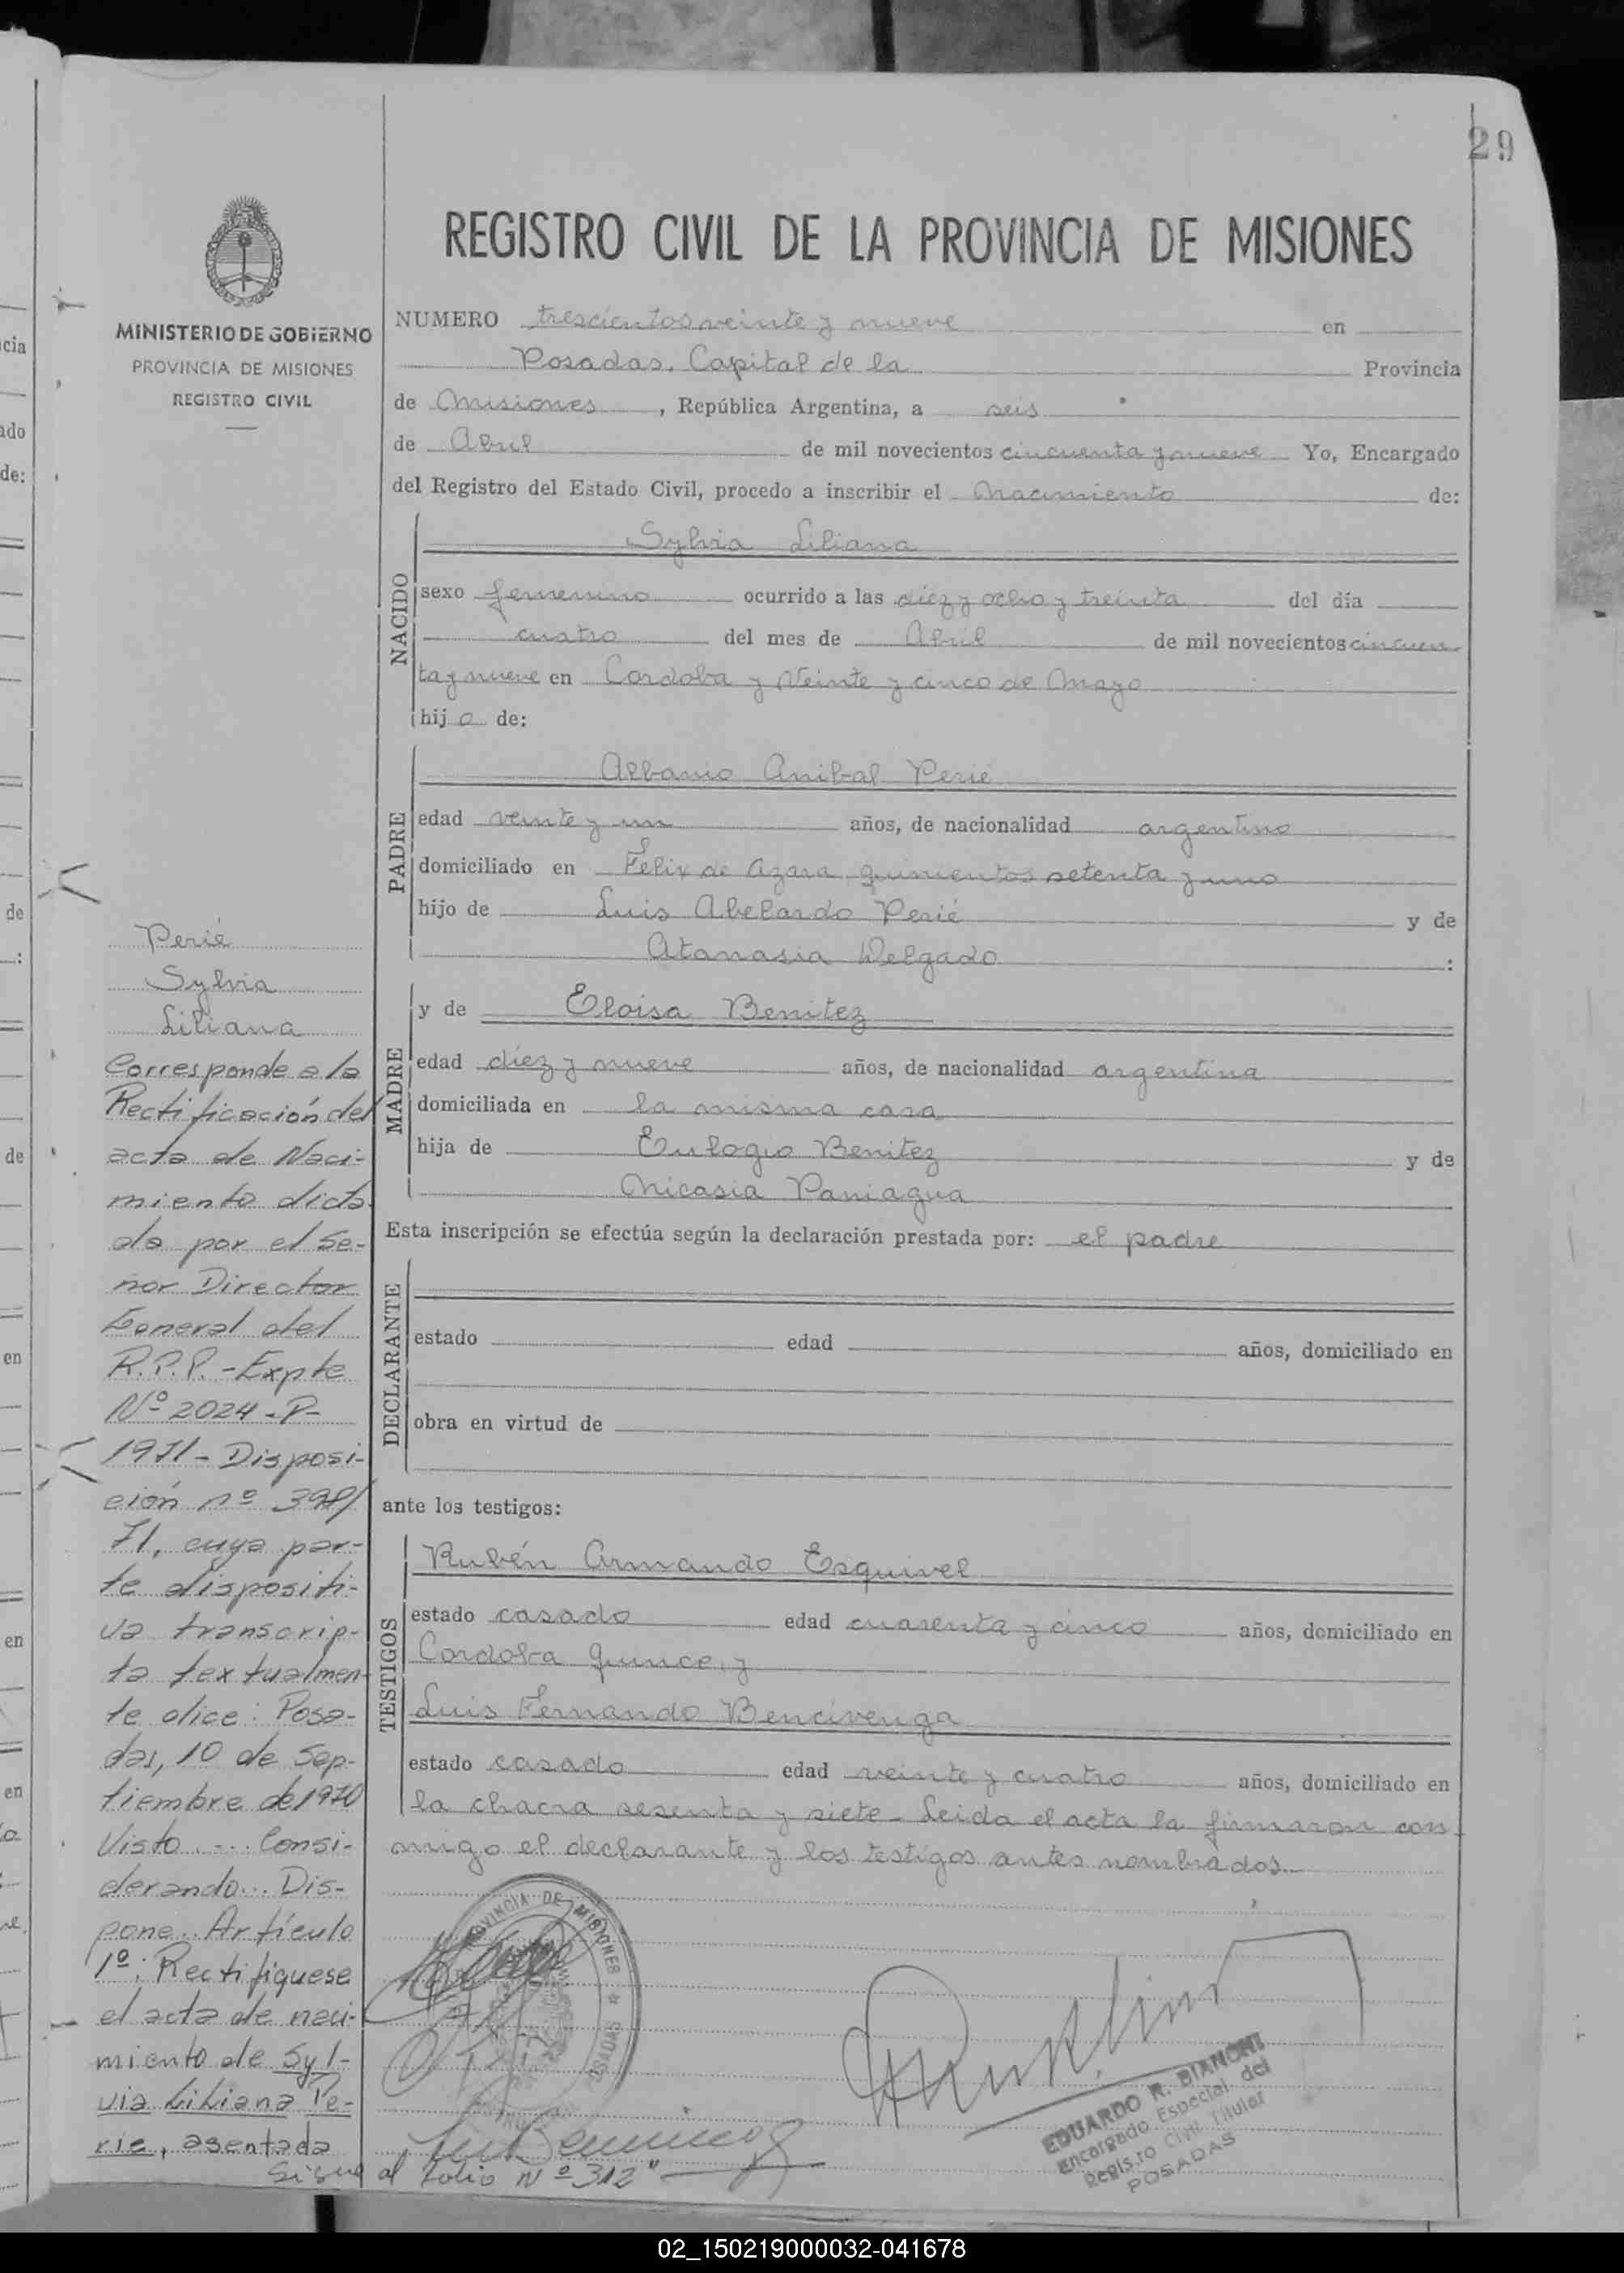 29
REGISTRO CIVIL DE LA PROVINCIA DE MISIONES
MINISTERIO DE GOBIERNO
PROVINCIA DE MISIONES
REGISTRO CIVIL
NUMERO trescientos veinte y nueve en
Posadas, Capital de la Provincia
de Misiones, República Argentina, a seis
de Abril de mil novecientos cincuenta y nueve Yo, Encargado
del Registro del Estado Civil, procedo a inscribir el Nacimiento de:
NACIDO
Sylvia Liliana
sexo femenino ocurrido a las diez y ocho y treinta del día
cuatro del mes de Abril de mil novecientos cincuen
ta y nueve en Cordoba y Veinte y cinco de Mayo
hij a de:
PADRE
Albanio Anibal Perie
edad veinte y un años, de nacionalidad argentino
domiciliado en Felix de Azara quinientos setenta y uno
hijo de Luis Abelardo Perié y de
Atanasia Delgado :
MADRE
y de Eloisa Benitez
edad diez y nueve años, de nacionalidad argentina
domiciliada en la misma casa
hija de Eulogio Benitez y de
Nicasia Paniagua
Esta inscripción se efectúa según la declaración prestada por: el padre
DECLARANTE
estado edad años, domiciliado en
obra en virtud de
ante los testigos:
TESTIGOS
Rubén Armando Esquivel
estado casado edad cuarenta y cinco años, domiciliado en
Cordoba quince, y
Luis Fernando Bencivenga
estado casado edad veinte y cuatro años, domiciliado en
la chacra sesenta y siete - Leida el acta la firmaron con
migo el declarante y los testigos antes nombrados.
Perié
Sylvia
Liliana
Corresponde a la
Rectificación del
acta de Naci-
miento dicta
da por el Se-
ñor Director
General del
R.P.P. - Expte
Nº 2024 - P-
1971 - Disposi-
ción nº
71, cuya par-
te dispositi-
va transcrip-
ta textualmen
te dice: Posa-
das, 10 de Sep-
tiembre de 1970
Visto ... Consi-
derando... Dis-
pone.. Artículo
1º: Rectifiquese
el acta de naci-
miento de Syl-
via Liliana Pe-
rie, asentada
Sigue al folio Nº 312"
PROVINCIA DE MISIONES
POSADAS
EDUARDO R. BIANCHI
Encargado Especial del
Registro Civil Titular
POSADAS
02_150219000032-041678